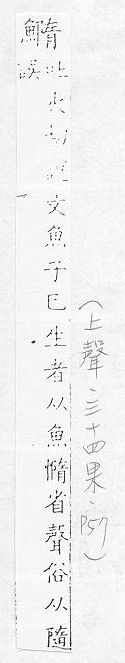 鰖
吐火切說文魚子已生者从魚惰省聲俗从隨
誤
(上聲、三十四果、P57)